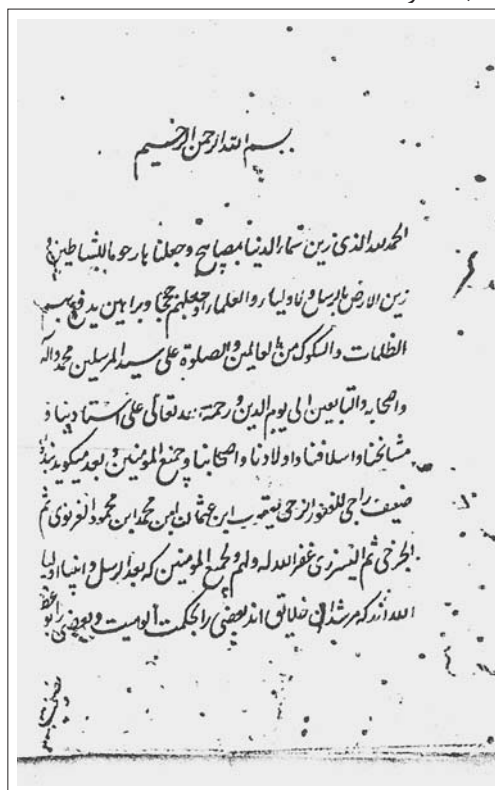 بسم الله الرحمن الرحيم
الحمد لله الذی زین سماء الدنیا بمصابیح وجعلنها رجوما للشیاطین و
زین الارض بالرسل والاولیاء والعلماء وجعلهم حججا وبراهین یدفع بهم
الظلمات والشکوک من العالمین والصلوة علی سید المرسلین محمد واله
واصحابه والتابعین الی یوم الدین ورحمة الله تعالی علی استادینا و
مشائخنا واسلافنا واولادنا واصحابنا وجمیع المؤمنین وبعد میکوید بنده
ضعیف راجی للغفور الرحی یعقوب ابن عثمان ابن محمد ابن محمود الغزنوی ثم
الجرخی ثم السررزی غفر الله له ولهم ولجمیع المؤمنین که بعد از رسل وانبیا اولیا
الله اند که مرشدان خلائق اند بعضی را بحکمت